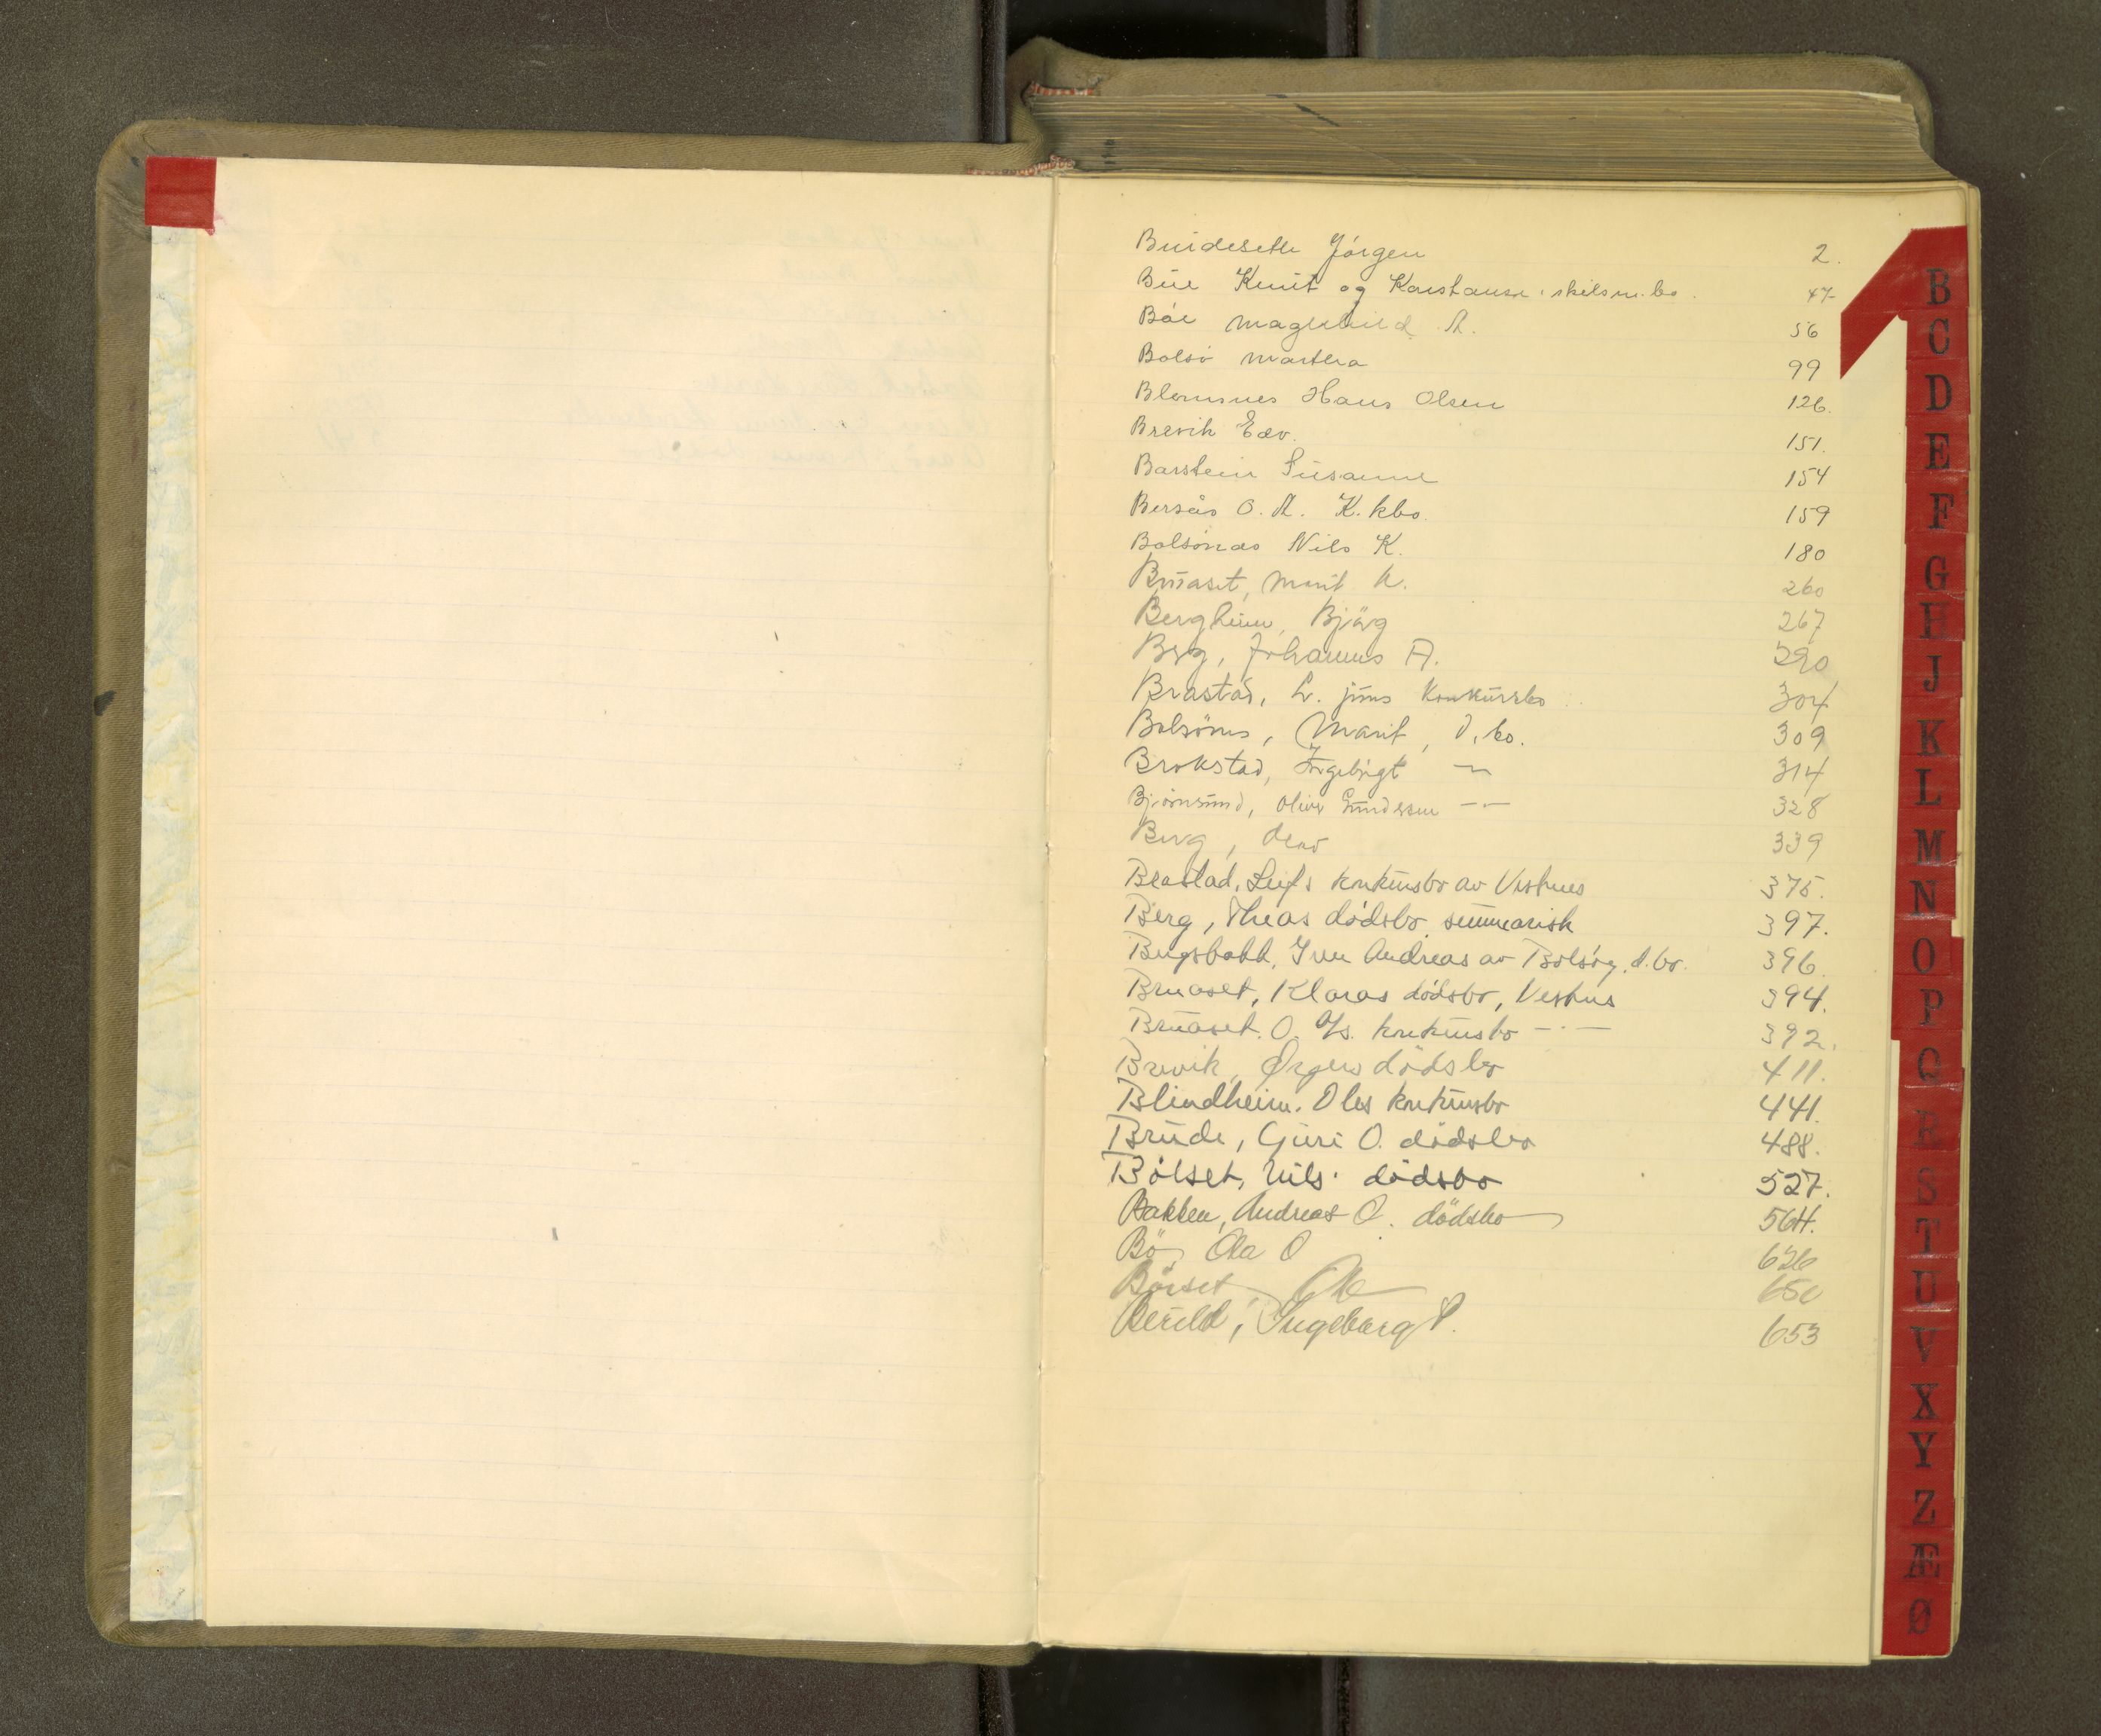 Buidesette Jörgen 2.
Bue Knut og Konstanse skilsm.bo. 47
Böe Magnhild A. 56
Bolsö Martha 99
Blomsnes Hans Olsen 126.
Brevik Edv. 151.
Barstein Susanne 154
Bersås O. A. K.kbo. 159
Bolsönes Nils K. 180
Bruaset, Marit K. 260
Bergheim, Bjärg 267
Berg, Johannes A. 290
Brastad, L. juns Konkursbo 304
Bolsönes, Marit, d.bo. 309
Brokstad, Ingebrigt — 314
Björnsund, Oliver Gundersen -"- 328
Berg, Olav 339
Brastad, Leifs konkursbo av Vestnes 375.
Berg, Theas dödsbo summarisk 397.
Iver Andreas av Bolsöy, d.bo. 396.
Bruaset, Klaras dödsbo, Vestnes 394.
Bruaset. O. A/s. konkursbo -"- 392.
Brevik, Ørgers dödsbo 411.
Blindheim. Oles konkursbo 441.
Brude, Guri O. dödsbo 488.
Bölset, Nils' dödsbo 527.
Bakken, Andreas O. dödsbo 564.
Bö, Ola O 626
Börset, Ole 650
Berild, Ingeborg P. 653
B
C
D
E
F
G
H
J
K
L
M
N
O
P
Q
R
S
T
U
V
X
Y
Z
Æ
Ø